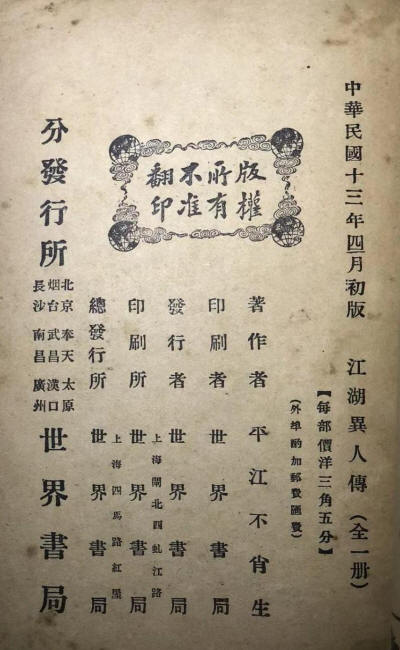 中華民國十三年四月初版
江湖異人傳（全一册）
【每部價洋三角五分】
（外埠酌加郵費匯費）
版權所有
不准翻印
著作者　平江不肖生
印刷者　世界書局
發行者　世界書局
印刷所　世界書局
上海閘北西虬江路
總發行所　世界書局
上海四馬路紅屋
分發行所
北京　奉天　太原
烟台　武昌　漢口
長沙　南昌　廣州
世界書局